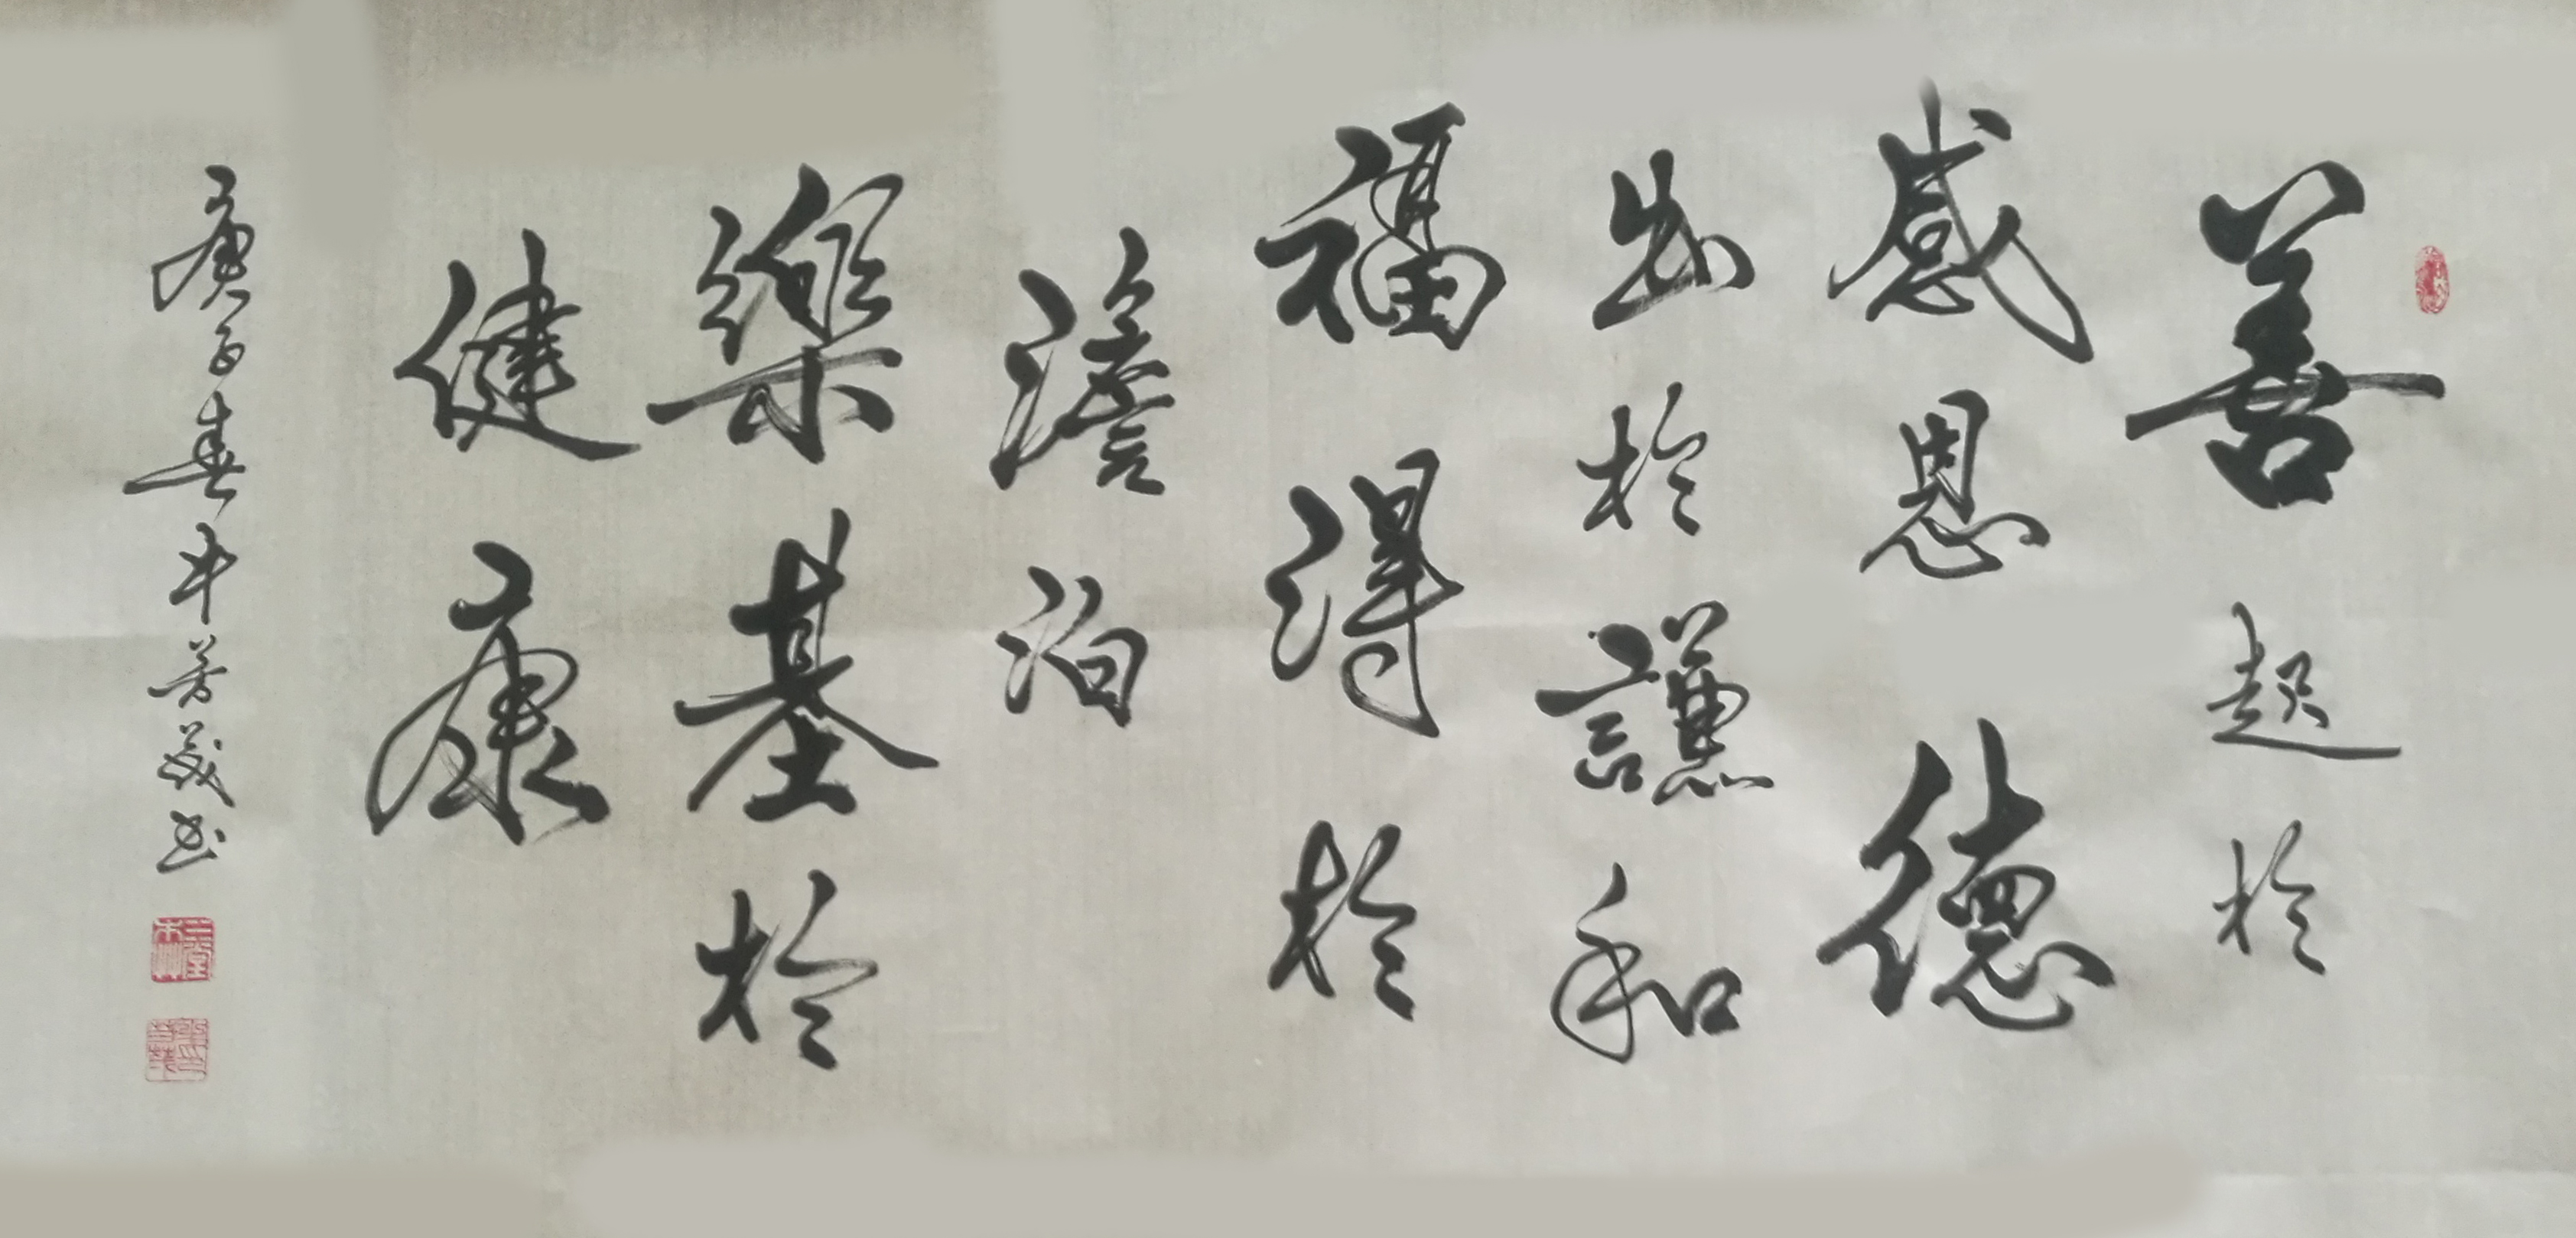 善起於
感恩德
出於謙和
福得於
澹泊
樂基於
健康
庚子春牛芳義书